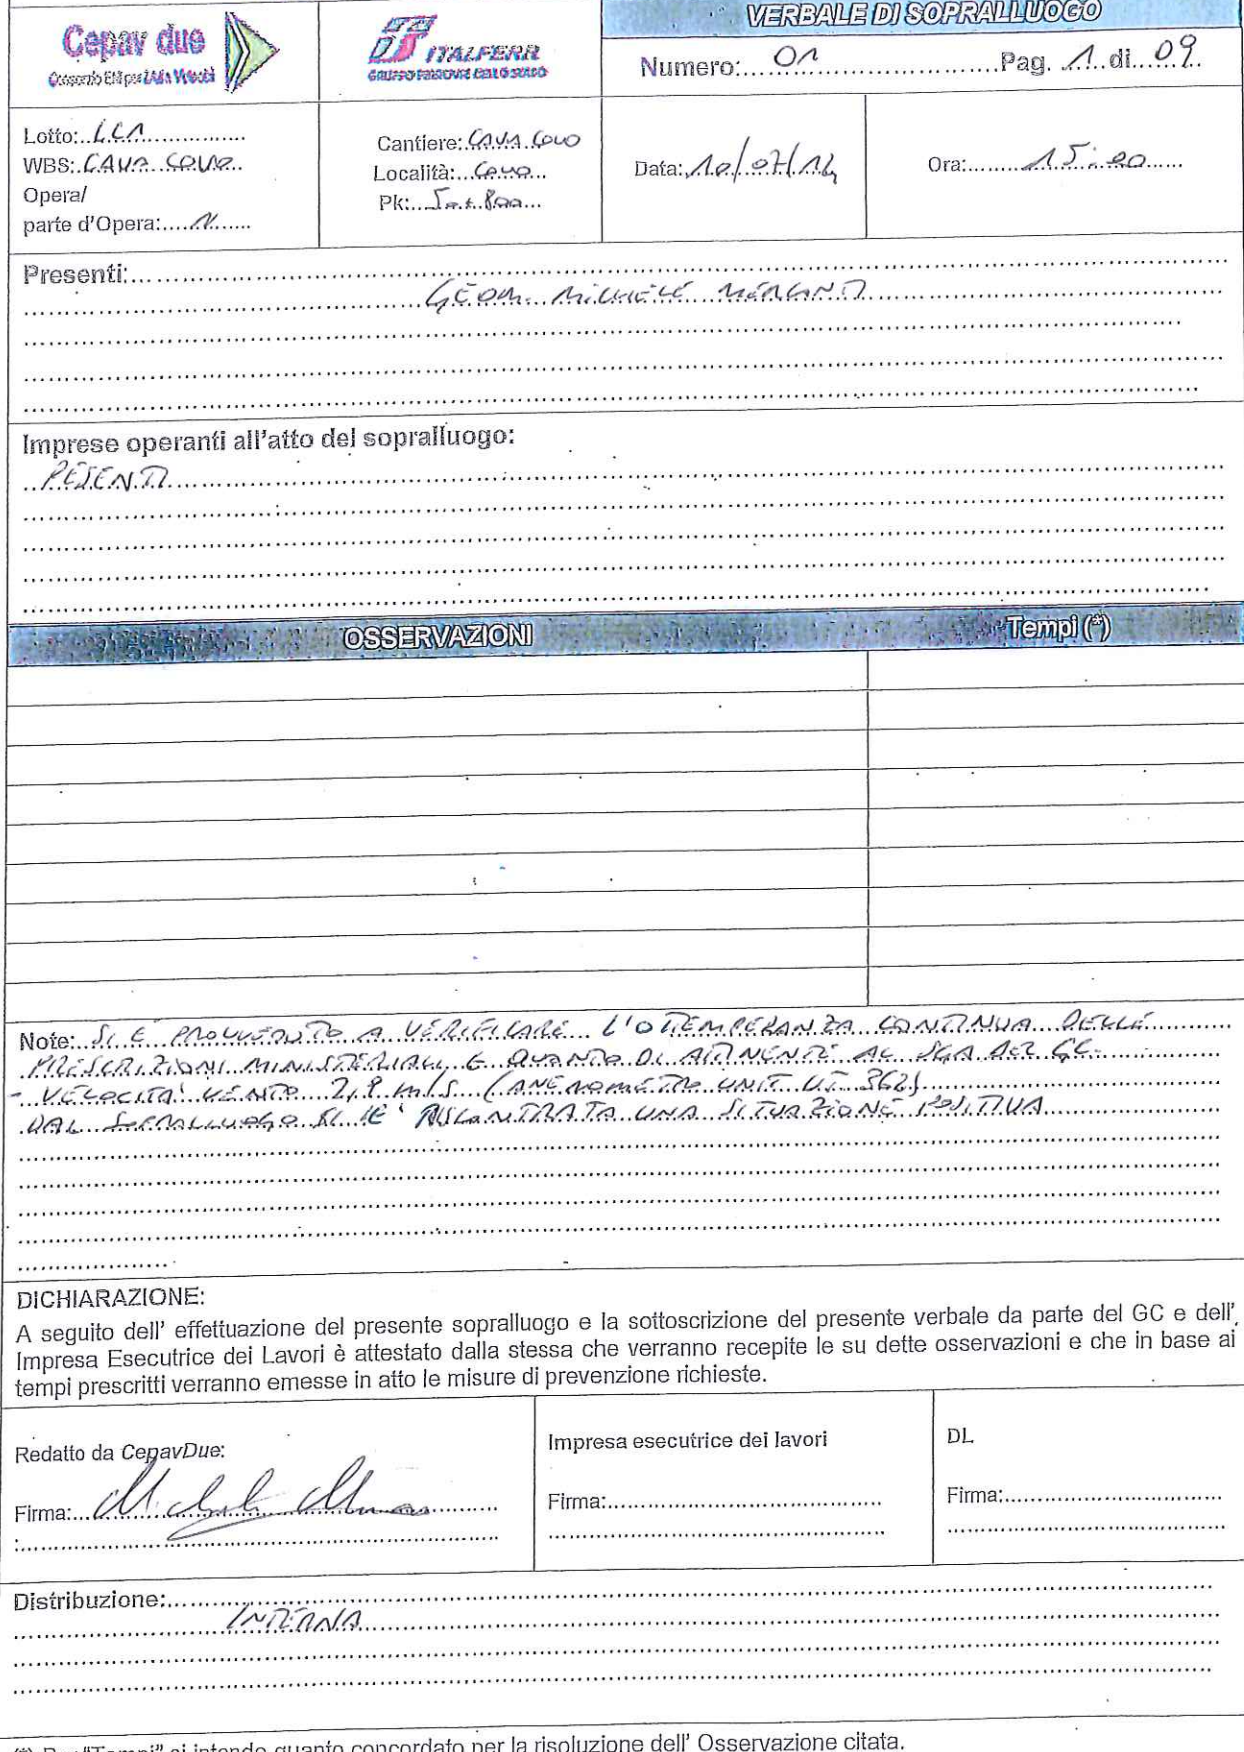 Cepav due
Consorzio ENI per L'Alta Velocità
ITALFERR
GRUPPO FERROVIE DELLO STATO
VERBALE DI SOPRALLUOGO
Numero: 01 Pag. 1 di 09
Lotto: LC1
WBS: CAVA COVO
Opera/
parte d'Opera: N
Cantiere: CAVA COVO
Località: COVO
Pk: 50+800
Data: 10/07/14
Ora: 15:20
Presenti:
GEOM. MICHELE
Imprese operanti all'atto del sopralluogo:
PESENTI
OSSERVAZIONI Tempi (*)
Note: SI E PROVVEDUTO A VERIFICARE L'OTTEMPERANZA CONTINUA DELLE
PRESCRIZIONI MINISTERIALI E QUANTO DI ATTINENTE AL SGA DEL GC.
- VELOCITA' VENTO 2,8 m/s (ANEMOMETRO UNIT UT 362)
DAL SOPRALLUOGO SI E' RISCONTRATA UNA SITUAZIONE POSITIVA
DICHIARAZIONE:
A seguito dell' effettuazione del presente sopralluogo e la sottoscrizione del presente verbale da parte del GC e dell'
Impresa Esecutrice dei Lavori è attestato dalla stessa che verranno recepite le su dette osservazioni e che in base ai
tempi prescritti verranno emesse in atto le misure di prevenzione richieste.
Redatto da CepavDue:
Firma:
Impresa esecutrice dei lavori
Firma:
DL
Firma:
Distribuzione:
INTERNA
(*) Per "Tempi" si intende quanto concordato per la risoluzione dell' Osservazione citata.